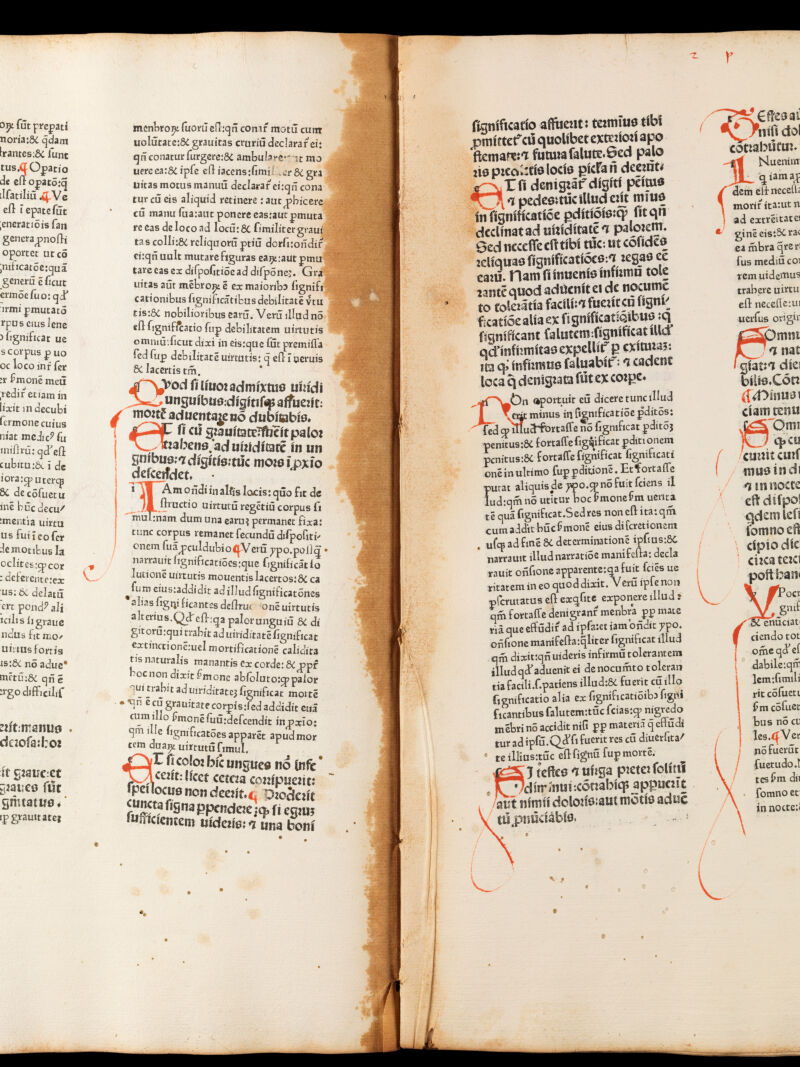 oꝝ sūt prepati
moria:& q̄dam
rantes:& sunt
tus.¶ Opatio
de est opatō:q̄
ilsatiliū.¶ Ve
est ī epate sūt
generatiōis san
genera pnosti
oportet ut cō
gnificatōe:quā
generū ē sicut
ermōe suo: qd'
irmi pmutatō
rpus eius lene
o significat ue
s corpus p uo
oc loco inf ser
er fmone meū
redir̄ etiam in
lixit in decubi
sermone cuius
niat medic⁹ su
ministrū: qd'est
cubitu:& ī de
iora:ꝙ uterqȝ
& de cōsuetu
inē huc decu/
ementia uirtu
us fui ī eo ser
de motibus la
oclites:ꝙ cor
: deferente:ex
us: & delatū
fert pond⁹ ali
icilis si graue
ndus sit mo/
uirius fortis
us:& nō adue
mētū:& qn̄ ē
ergo difficilis
erit:manus
derosa:hoz
it graue:et
graues sūt
gnitatus.
up grauitateȝ
menbroꝝ suorū est:qn̄ conir̄ motū cum
uolūtate:& grauitas cruriū declarar̄ ei:
qn̄ conatur surgere:& ambulare mo
uere ea:& ipse est iacens: & gra
uitas motus manuū declarar̄ ei:qn̄ cona
tur cū eis aliquid retinere : aut phicere
cū manu sua:aut ponere eas:aut pmuta
re eas de loco ad locū:& similiter graui
tas colli:& reliquorū ptiū dorsi:ondir̄
ei:qn̄ uult mutare figuras eaꝝ:aut pmu
tare eas ex dispositiōe ad dispōneȝ. Gra
uitas aūt mēbroꝝ ē ex maiorib⁹ signifi
cationibus significātibus debilitatē v̄tu
tis:& nobilioribus earū. Verū illud nō
est significatio sup debilitatem uirtutis
omniū:sicut dixi in eis:que sūt premissa
sed sup debilitatē uirtutis: q̄ est ī neruis
& lacertis tm̄.
Qvod si liuor admixtus uiridi
unguibus:digitisqȝ affuerit:
mortē aduentare nō dubitabis.
Et si cū grauitate fuerit palor
trahens ad uiriditatē in un
gnibus:⁊ digitis:tūc mors ī pxio
descendet.
IAm ondi in aliis locis: quō fit de
structio uirtutū regētiū corpus si
mul:nam dum una earuȝ permanet fixa:
tunc corpus remanet secundū dispositi
onem suā peuldubio ¶Verū ypo.postqꝫ
narrauit significatiōes:que significāt so
lutionē uirtutis mouentis lacertos:& ca
sum eius:addidit ad illud significatōnes
alias significantes destruc onē uirtutis
alterius. Qd'est:qa palor unguiū & di
gitorū:qui trahit ad uiriditatē significat
extinctionē:uel mortificationē calidita
tis naturalis manantis ex corde: & ppf
hoc non dixit fmone absoluto:ꝙ palor
qui trahit ad uiriditateȝ significat mortē
qn̄ ē cū grauitate corpis:sed addidit eūā
cum illo fmonē suū:descendit in pxio:
qm̄ ille significatōes apparēt apud mor
tem duaꝝ uirtutū simul.
ET si color hic ungues nō infe
cerit: licet cetera corripuerit:
spei locus non deerit.¶ Proderit
cuncta signa ppendere:ꝙ si egrus
sufficientem uideris: ⁊ una boni
significatio affuerit: termīus tibi
pmittet cū quolibet exteriori apo
stemate: ⁊ futura salute. Sed palo
ris locis picla n̄ deerūt.
ET si denigrāt digiti pēitus
⁊ pedes:tūc illud erit mīus
in significatiōe pditiōis:q̄ sit qn̄
declinat ad uiriditatē ⁊ palorem.
Sed necesse est tibi tūc: ut cōsides
reliquas significatiōes: ⁊ regas eē
earū. Nam si inuenis infirmū tole
rantē quod aduēnit ei de nocumē
to tolerātia facili: ⁊ fuerit cū signi/
ficatiōe alia ex significatiōibus :q̄
significant salutem:significat illd'
qd'infirmitas expellit p exituras:
ita ꝙ infirmus saluabit : ⁊ cadent
loca q̄ denigrata sūt ex corpe.
NOn oportuit eū dicere tunc illud
erit minus in significatiōe pditōs:
sed ꝙ illud fortasse nō significat pditōȝ
penitus:& fortasse significat pditionem
penitus:& fortasse significat significati
onē in ultimo sup pditionē. Et fortasse
putat aliquis de ypo.ꝙ nō fuit sciens il
lud:qm̄ nō utitur hoc fmone fm uerita
tē quā significat. Sed res non est ita: qm̄
cum addit hūc fmonē eius discretionem
usqȝ ad finē & determinationē ipsius:&
narrauit illud narratiōe manifesta: decla
rauit onsione apparente:qa fuit sciēs ue
ritatem in eo quod dixit. Verū ipse non
pscrutatus est exqsite exponere illud :
qm̄ fortasse denigrant menbra pp mate
riā que effūdir̄ ad ipsa:et iam ondit ypo.
onsione manifesta:q̄liter significat illud
qm̄ dixit:qn̄ uideris infirmū tolerantem
illud qd'aduenit ei de nocumto toleran
tia facili.s.patiens illud:& fuerit cū illo
significatio alia ex significatiōibȝ signi
ficantibus salutem:tūc scias:ꝙ nigredo
mēbri nō accidit nisi pp materiā q̄ effūdi
tur ad ipsū. Qd'si fuerit res cū diuersita/
te illius:tūc est signū sup mortē.
SI testes ⁊ uirga preter solitū
diminui:cōtrahiqȝ appuerit
aut nimii doloris:aut mōtis aduē
tū pnūciabis.
TEstes aū
nisi dol
cōtrahūtur.
INuenim
q iam ap
dem est necessa
morir̄ ita:ut n
ad extreitate
ginē eis:& rac
ea mbra q̄re r
sus mediū co
rem uidemus
trahere uirtu
est necesse:u
uersus origin
Omnu
⁊ nat
giat: ⁊ die
bilis. Cōtr
¶Minus t
ciam tenu
Omn
ꝙ cu
currit curs
mus in di
⁊ in nocte
est dispos
qdem lesi
somno est
cipio die
circa terci
post hanc
YPocr
gnif
& enūciat
ciendo tot
ome qd'es
dabile:qm̄
lem:simili
rit cōsuet
fm cōsuet
bus nō cu
les.¶ Ver
nō fuerūt
suetudo.
tes fm di
somno et
in nocte: